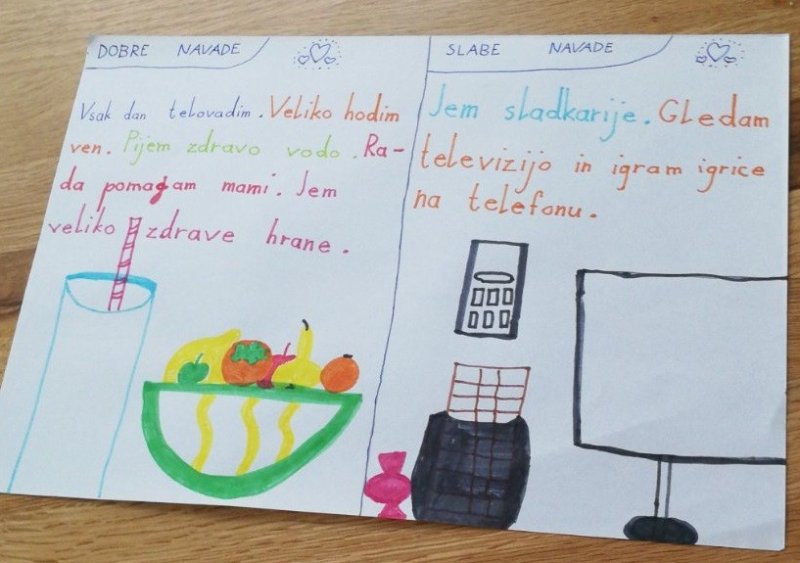 DOBRE NAVADE
Vsak dan telovadim. Veliko hodim
ven. Pijem zdravo vodo. Ra-
da pomagam mami. Jem
veliko zdrave hrane.
SLABE NAVADE
Jem sladkarije. Gledam
televizijo in igram igrice
na telefonu.